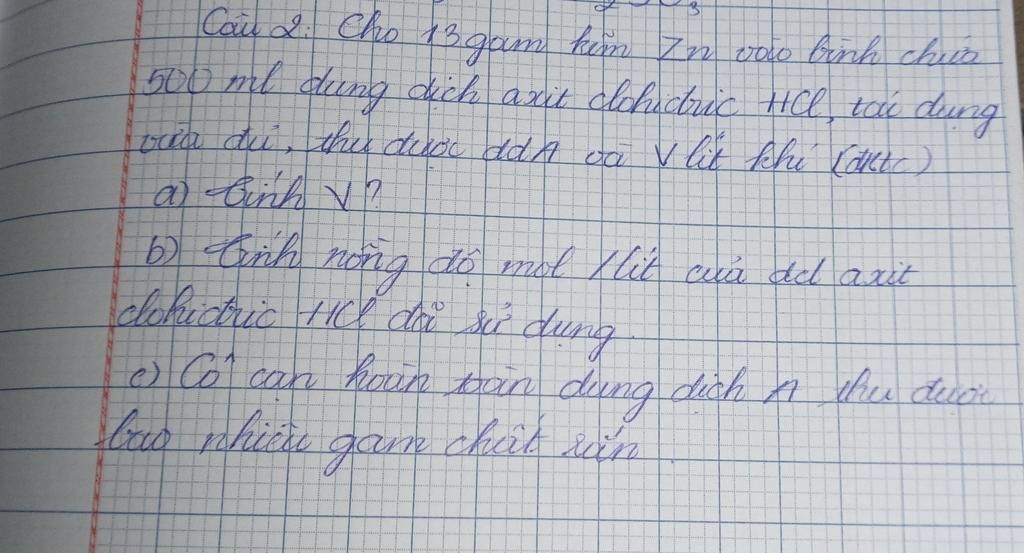 Câu 2: Cho 13 gam kẽm Zn vào bình chứa
500 ml dung dịch axit clohiđric HCl, tác dụng
vừa đủ, thu được ddA và V lít khí (đktc)
a) Tính V?
b) Tính nồng độ mol/lít của dd axit
clohiđric HCl đã sử dụng.
c) Cô cạn hoàn toàn dung dịch A thu được
bao nhiêu gam chất rắn.